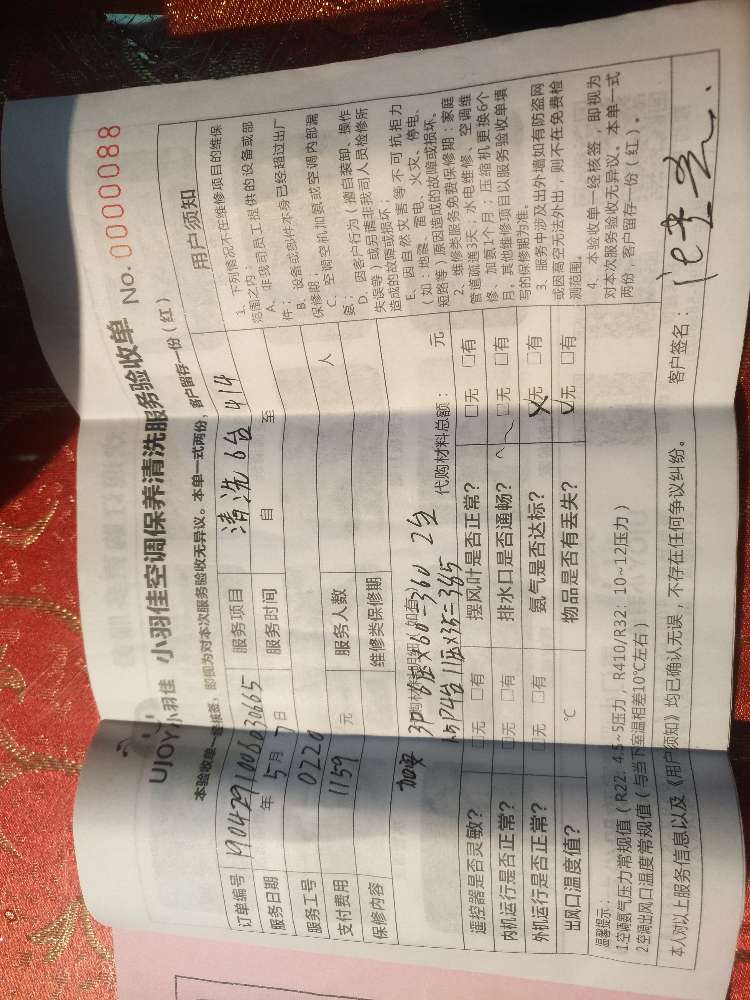 UJOY小羽佳 小羽佳空调保养清洗服务验收单 No. 0000088
本验收单一经核签，即视为对本次服务验收无异议。本单一式两份，客户留存一份（红）
订单编号 1904291006030665 服务项目 清洗6台 414
服务日期 年 5月 7日 服务时间 自 至
服务工号 0220
支付费用 1159 元 服务人数 人
保修内容 维修类保修期
加安 3P 6压×60=360 2台
1.5P 4台 11压×35=385
代购材料总额： 元
遥控器是否灵敏？ □无 □有 摆风叶是否正常？ □无 □有
内机运行是否正常？ □无 □有 排水口是否通畅？ □无 □有
外机运行是否正常？ □无 □有 氨气是否达标？ □无 □有
出风口温度值？ ℃ 物品是否有丢失？ □无 □有
温馨提示：
1.空调氨气压力常规值（R22：4.5~5压力，R410/R32：10~12压力）
2空调出风口温度常规值（与当下室温相差10℃左右）
本人对以上服务信息以及《用户须知》均已确认无误，不存在任何争议纠纷。 客户签名：
用户须知
1、下列情况不在维修项目的维保
范围之内：
A、非我司员工提供的设备或部
件；
B、设备或部件本身已经超过出厂
保修期；
C、空调空机加氨或空调内部漏
氨；
D、因客户行为（擅自装卸、操作
失误等）或另请非我司人员检修所
造成的故障或损坏；
E、因自然灾害等不可抗拒力
（如：地震、雷电、火灾、停电、
短路等）原因造成的故障或损坏、
2、维修类服务免费保修期：家庭
管道疏通3天；水电维修、空调维
修、加氨1个月；压缩机更换6个
月，其他维修项目以服务验收单填
写的保修期为准。
3、服务中涉及出外墙如有防盗网
或因高空无法外出，则不在免费检
测范围。
4、本验收单一经核签，即视为
对本次服务验收无异议。本单一式
两份，客户留存一份（红）。